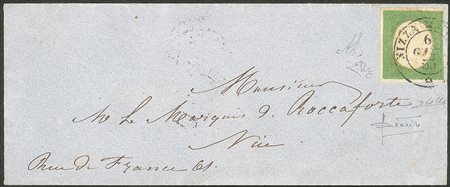 NIZZA
6
Monsieur
Mr Le Marquis d. Roccaforte
Nice
Rue de France 61.